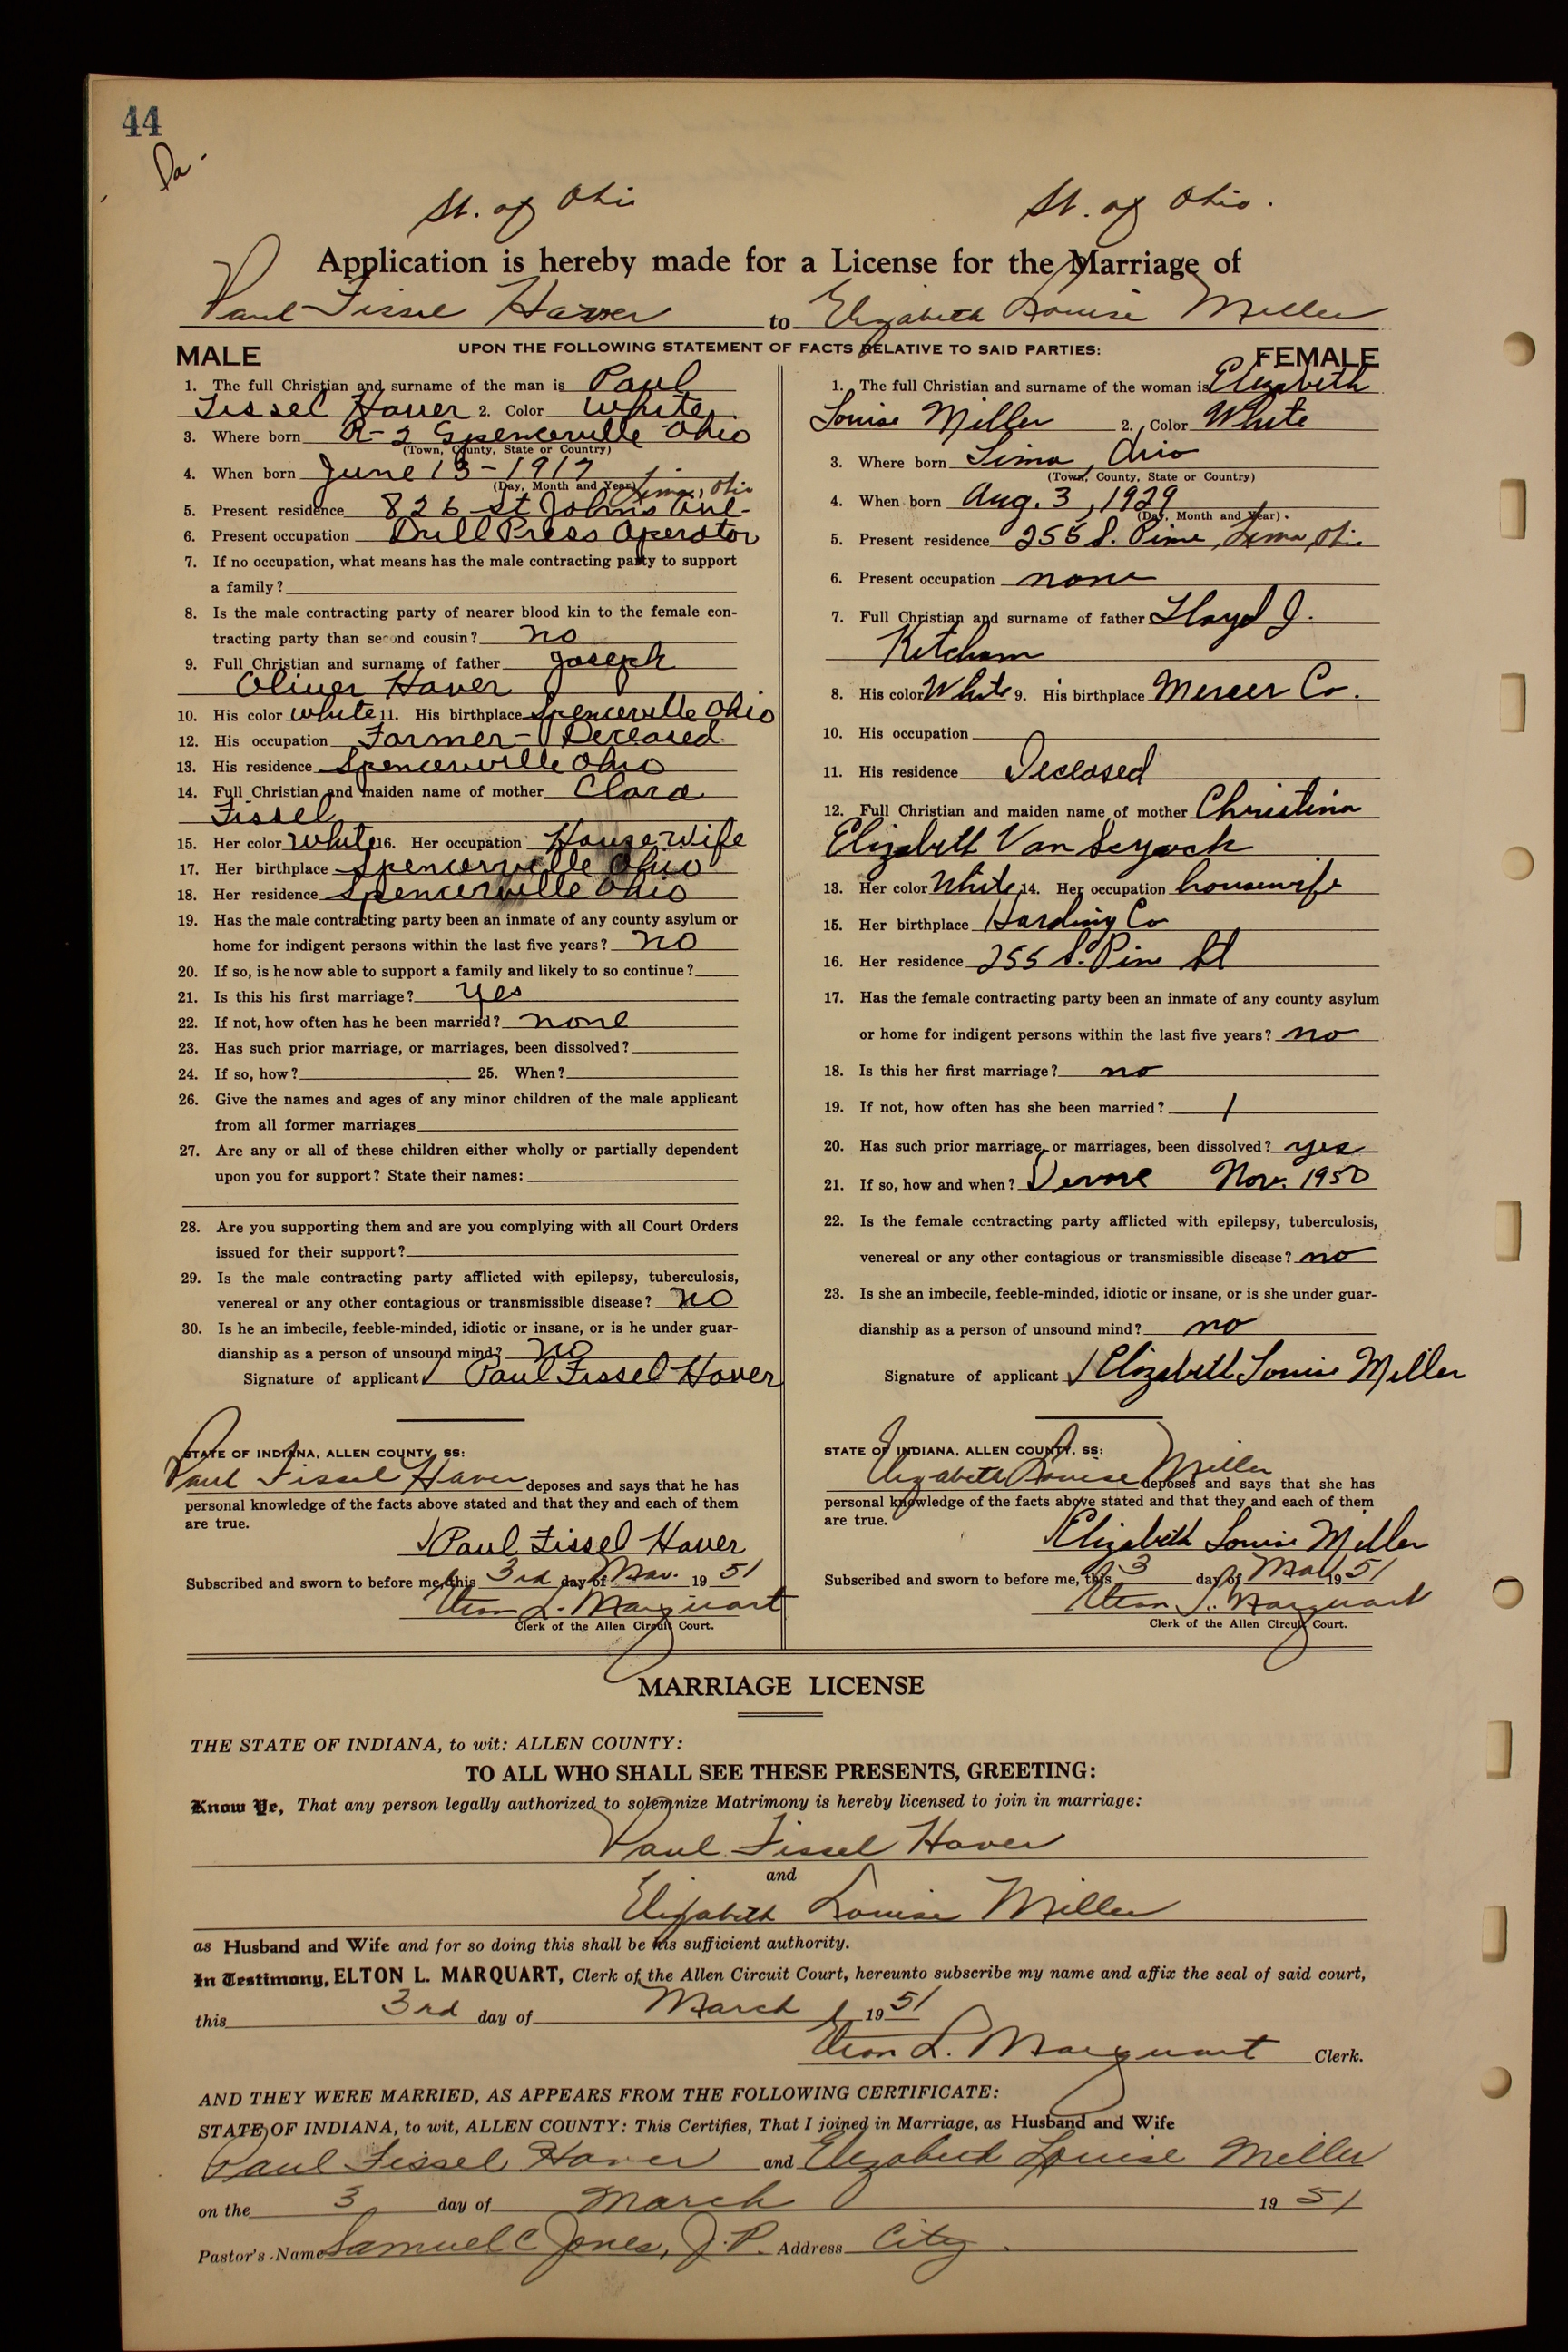 44
Da.
St. of Ohio
St. of Ohio.
Application is hereby made for a License for the Marriage of
Paul Fissel Haver to Elizabeth Louise Miller
UPON THE FOLLOWING STATEMENT OF FACTS RELATIVE TO SAID PARTIES:
MALE
1. The full Christian and surname of the man is Paul
Fissel Haver 2. Color White
3. Where born R-2 Spencerville Ohio
(Town, County, State or Country)
4. When born June 13-1917
(Day, Month and Year) Lima, Ohio
5. Present residence 826 St Johns Ave-
6. Present occupation Drill Press Operator
7. If no occupation, what means has the male contracting party to support
a family?
8. Is the male contracting party of nearer blood kin to the female con-
tracting party than second cousin? no
9. Full Christian and surname of father Joseph
Oliver Haver
10. His color white 11. His birthplace Spencerville Ohio
12. His occupation Farmer - Deceased
13. His residence Spencerville Ohio
14. Full Christian and maiden name of mother Clara
Fissel
15. Her color White 16. Her occupation House wife
17. Her birthplace Spencerville Ohio
18. Her residence Spencerville Ohio
19. Has the male contracting party been an inmate of any county asylum or
home for indigent persons within the last five years? no
20. If so, is he now able to support a family and likely to so continue?
21. Is this his first marriage? yes
22. If not, how often has he been married? none
23. Has such prior marriage, or marriages, been dissolved?
24. If so, how? 25. When?
26. Give the names and ages of any minor children of the male applicant
from all former marriages
27. Are any or all of these children either wholly or partially dependent
upon you for support? State their names:
28. Are you supporting them and are you complying with all Court Orders
issued for their support?
29. Is the male contracting party afflicted with epilepsy, tuberculosis,
venereal or any other contagious or transmissible disease? no
30. Is he an imbecile, feeble-minded, idiotic or insane, or is he under guar-
dianship as a person of unsound mind? no
Signature of applicant Paul Fissel Haver
STATE OF INDIANA, ALLEN COUNTY, SS:
Paul Fissel Haver deposes and says that he has
personal knowledge of the facts above stated and that they and each of them
are true.
Paul Fissel Haver
Subscribed and sworn to before me, this 3rd day of Mar. 19 51
Elton L. Marquart
Clerk of the Allen Circuit Court.
FEMALE
1. The full Christian and surname of the woman is Elizabeth
Louise Miller 2. Color White
3. Where born Lima, Ohio
(Town, County, State or Country)
4. When born Aug. 3, 1929
(Day, Month and Year)
5. Present residence 255 S. Pine, Lima, Ohio
6. Present occupation none
7. Full Christian and surname of father Lloyd J.
Ketcham
8. His color White 9. His birthplace Mercer Co.
10. His occupation
11. His residence Deceased
12. Full Christian and maiden name of mother Christina
Elizabeth Van
13. Her color White 14. Her occupation housewife
15. Her birthplace Harding Co
16. Her residence 255 S. Pine St
17. Has the female contracting party been an inmate of any county asylum
or home for indigent persons within the last five years? no
18. Is this her first marriage? no
19. If not, how often has she been married? 1
20. Has such prior marriage, or marriages, been dissolved? yes
21. If so, how and when? Nov. 1950
22. Is the female contracting party afflicted with epilepsy, tuberculosis,
venereal or any other contagious or transmissible disease? no
23. Is she an imbecile, feeble-minded, idiotic or insane, or is she under guar-
dianship as a person of unsound mind? no
Signature of applicant Elizabeth Louise Miller
STATE OF INDIANA, ALLEN COUNTY, SS:
Elizabeth Louise Miller deposes and says that she has
personal knowledge of the facts above stated and that they and each of them
are true.
Elizabeth Louise Miller
Subscribed and sworn to before me, this 3 day of Mar 19 51
Elton L. Marquart
Clerk of the Allen Circuit Court.
MARRIAGE LICENSE
THE STATE OF INDIANA, to wit: ALLEN COUNTY:
TO ALL WHO SHALL SEE THESE PRESENTS, GREETING:
Know Ye, That any person legally authorized to solemnize Matrimony is hereby licensed to join in marriage:
Paul Fissel Haver
and
Elizabeth Louise Miller
as Husband and Wife and for so doing this shall be his sufficient authority.
In Testimony, ELTON L. MARQUART, Clerk of the Allen Circuit Court, hereunto subscribe my name and affix the seal of said court,
this 3rd day of March 19 51
Elton L. Marquart Clerk.
AND THEY WERE MARRIED, AS APPEARS FROM THE FOLLOWING CERTIFICATE:
STATE OF INDIANA, to wit, ALLEN COUNTY: This Certifies, That I joined in Marriage, as Husband and Wife
Paul Fissel Haver and Elizabeth Louise Miller
on the 3 day of March 19 51
Pastor's Name Samuel C Jones, J.P. Address City